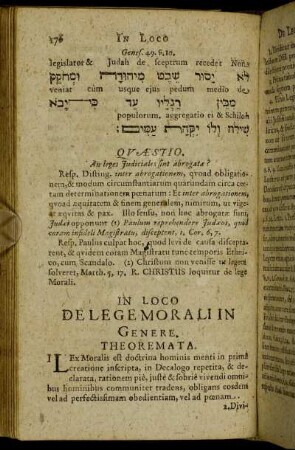 276 IN LOCO
Genes. 49. v. 10.
legislator & Judah de sceptrum recedet Non
לא יסור שבט מיהודה ומחקק
veniat cùm usque ejus pedum medio de
מבין רגליו עד כי־יבא
populorum, aggregatio ei & Schiloh
שילה ולו יקהת עמים:
QVÆSTIO.
An leges Judiciales sint abrogatæ?
Resp. Disting. inter abrogationem, quoad obligationem,
& modum circumstantiarum quarundam circa certam
determinationem pœnarum: Et inter abrogationem,
quoad æquitatem & finem generalem, nimirum, ut vigeat
æquitas & pax. Illo sensu, non hoc abrogatæ sunt,
Judæi opponunt (1) Paulum reprehendere Judæos, quod
coram infideli Magistratu, disceptent. 1. Cor. 6, 7.
Resp. Paulus culpat hoc, quod levi de causa disceptarent,
& quidem coram Magistratu tunc temporis Ethnico,
cum Scandalo. (2) Christum non venisse ut legem
solveret, March. 5, 17. R. CHRISTUS loquitur de lege
Morali.
IN LOCO
DE LEGE MORALI IN
GENERE.
THEOREMATA.
1 LEx Moralis est doctrina hominis menti in prima
creatione inscripta, in Decalogo repetita, & declarata,
rationem piè, justè & sobriè vivendi omnibus
hominibus communiter tradens, obligans eosdem
vel ad perfectissimam obedientiam, vel ad pœnam...
2. Divi-